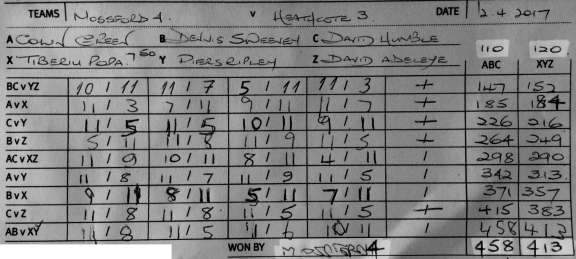 TEAMS MOSSFORD 4. V HEATHCOTE 3 DATE 2.4 2017
A COLIN GREEN B DENNIS SWEENEY C DAVID HUMBLE 110 120
X TIBERIU POPA. 750 Y PIERS RIPLEY Z DAVID ADELEYE ABC XYZ
BC V YZ 10 / 11 11 / 7 5 / 11 11 / 3 + 147 152
A V X 11 / 3 7 / 11 9 / 11 11 / 7 + 185 184
C V Y 11 / 5 11 / 5 10 / 11 9 / 11 + 226 216
B V Z 5 / 11 11 / 8 11 / 9 11 / 5 + 264 249
AC V XZ 11 / 9 10 / 11 8 / 11 4 / 11 1 298 290
A V Y 11 / 8 11 / 7 11 / 9 11 / 5 1 342 313
B V X 9 / 11 8 / 11 5 / 11 7 / 11 1 371 357
C V Z 11 / 8 11 / 8 11 / 5 11 / 5 + 415 383
AB V XY 11 / 8 11 / 5 11 / 6 10 / 11 1 458 413
WON BY MOSSFORD 4 458 413